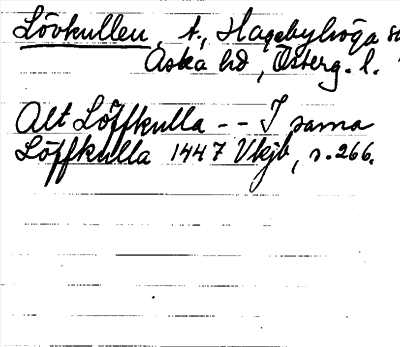 Lövkullen, t., Hagebyhöga s
Aska hd, Österg. l.
Alt Löffkulla -- I sama
Löffkulla 1447 Vkjb, s. 266.